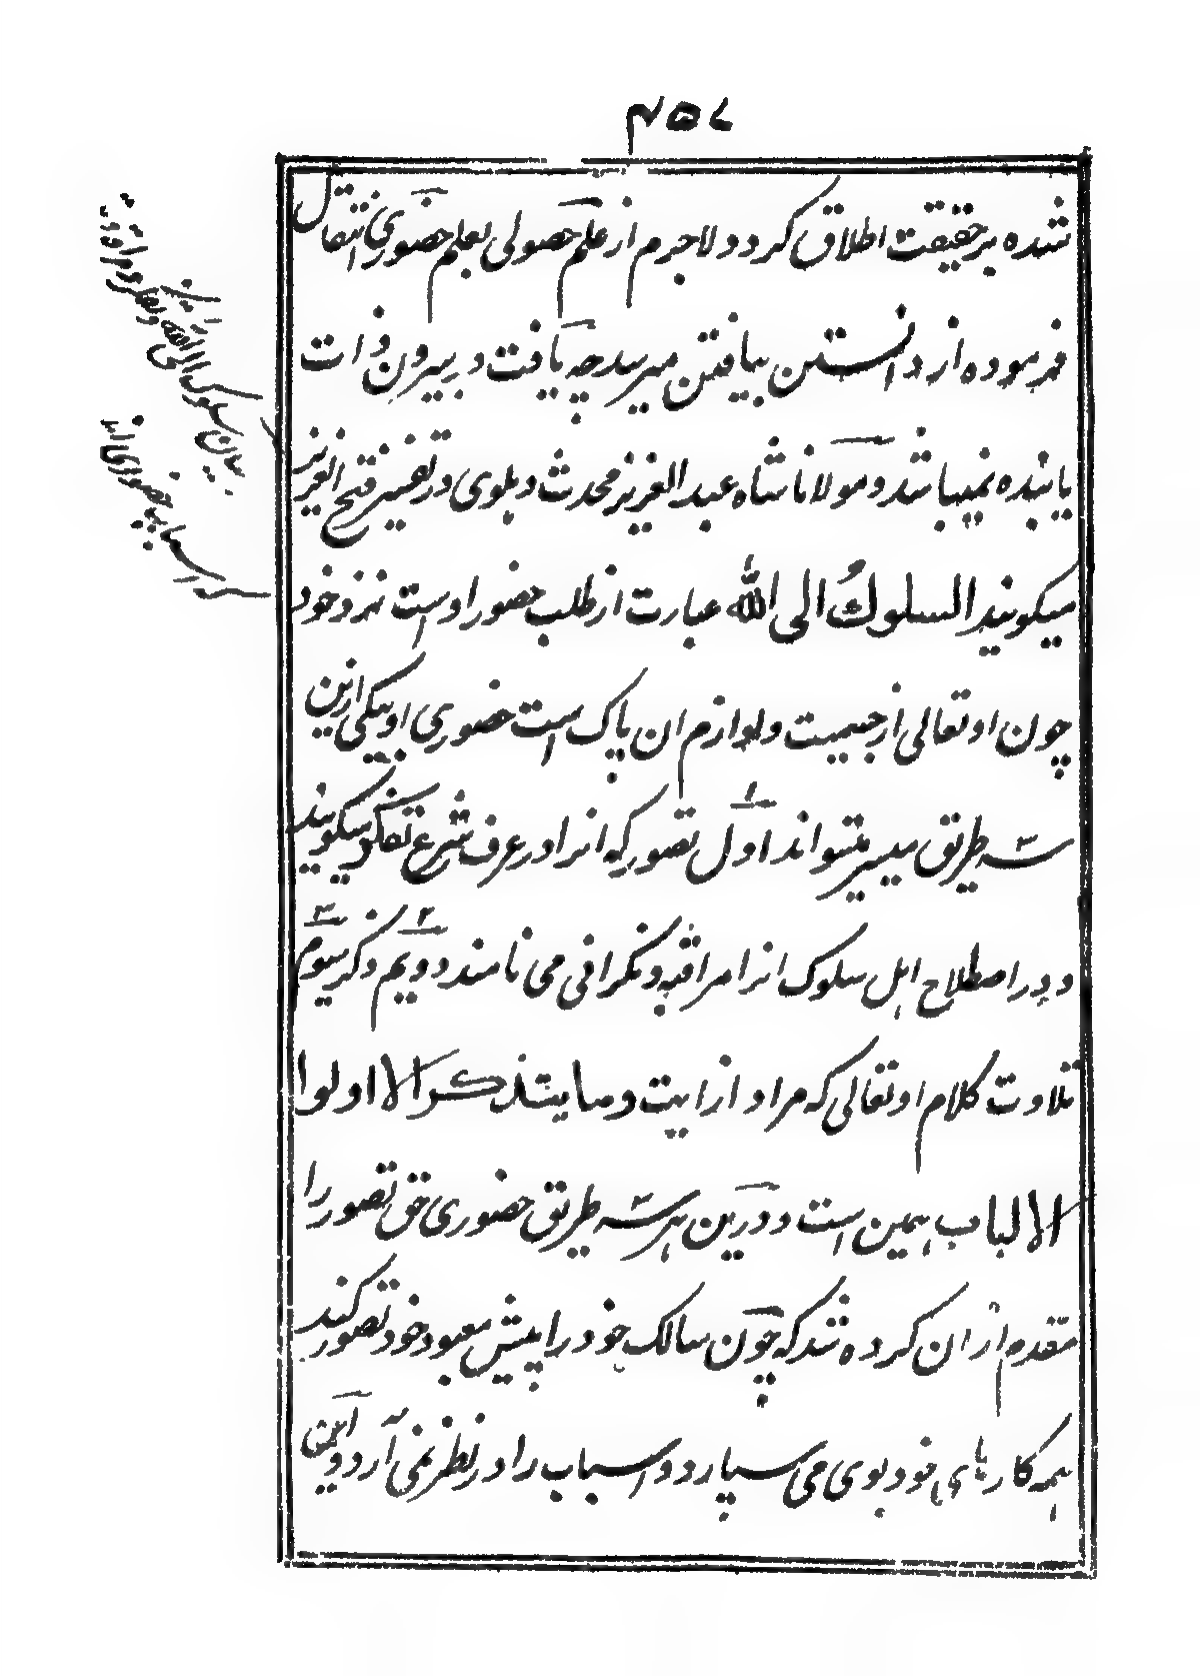 ۴۵۸
شده بر حقیقت اطلاق کرد و لاجرم از علم حصولی بعلم حضوری انتقال
فرموده از دانستن بیافتن میرسد چه یافت در بیرون ذات
یابنده نمیباشد و مولانا شاه عبد العزیز محدث دہلوی در تفسیر فتح العزیز
میگویند السلوک الی الله عبارت از طلب حضور اوست نزد خود
چون او تعالی از جسمیت و لوازم ان پاک است حضوری او بیکی ازین
سه طریق میسر میتواند اول تصور که انرا در عرف شرع تفکر میگویند
و در اصطلاح اہل سلوک انرا مراقبه و نگرانی می نامند دویم ذکر سیوم
تلاوت کلام او تعالی که مراد از ایت و ما یتذکر الا اولوا
الالباب ہمین است و درین ہر سه طریق حضوری حق تصور را
مقدم ازان کرده شد که چون سالک خود را پیش معبود خود تصور کند
ہمه کارہای خود بوی می سپارد و اسباب را در نظر نمی آرد و این
بیان سلوک الی الله و تفکر و مراقبه